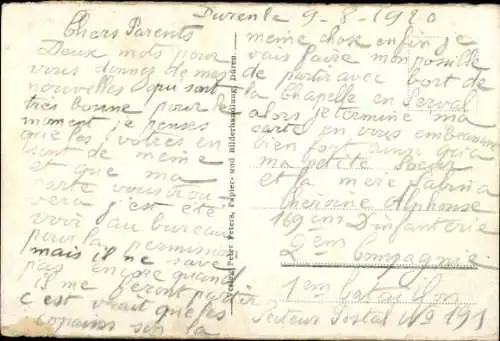 Duren le 9-8-1920
Chers Parents
Deux mots pour
vous donnez de mes
nouvelles qui sont
tres bonne pour le
moment je penses
que les votres en
sont de meme
et que ma
carte vous trou-
vera j'est été
voir au bureau
pour la permission
mais il ne save
pas encore quand
il me feront partir
c'est vrait que les
copains son la
Verlag Peter Peters, Papier- und Bilderhandlung, Düren.
meme chose enfin je
vais faire mon posible
de partir avec bort de
la Chapelle en Serval
alors je termine ma
carte en vous embrassant
bien fort ainsi qu'a
ma petite Soeur
et la mère
Alphonse
169em D'infanterie
2em Compagnie
1em batailon
Secteur Postal No 191